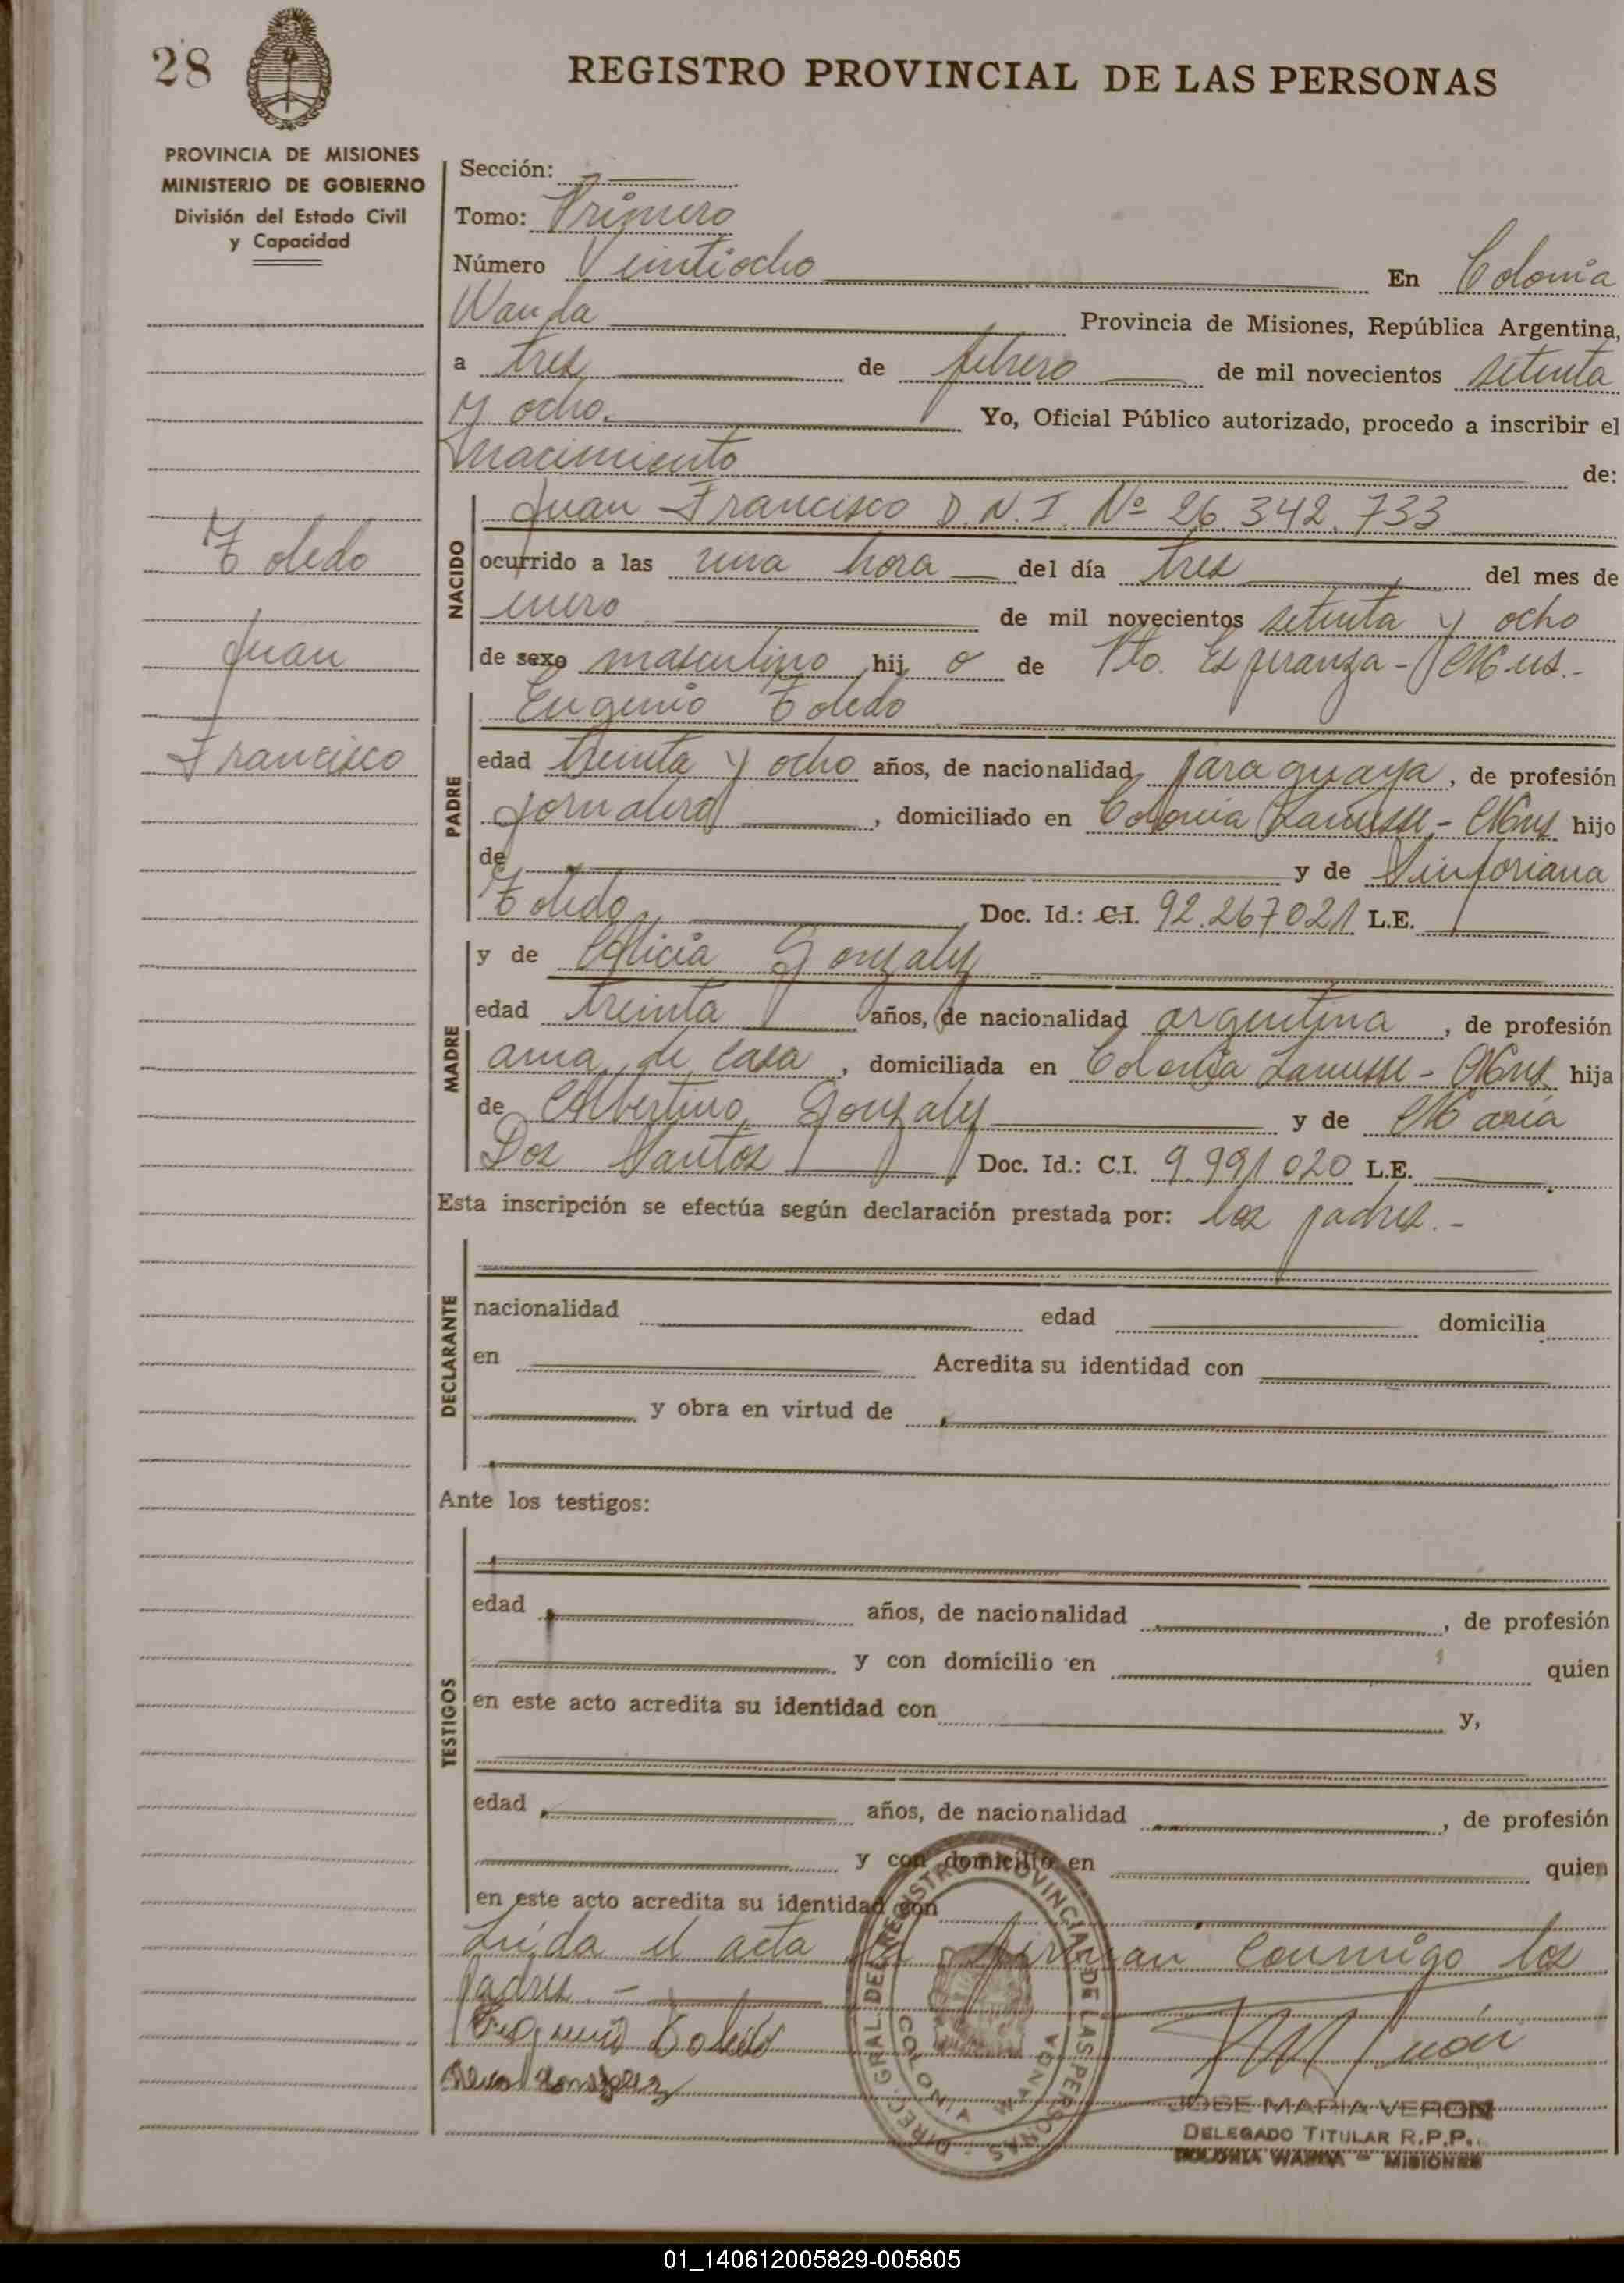 28
REGISTRO PROVINCIAL DE LAS PERSONAS
PROVINCIA DE MISIONES
MINISTERIO DE GOBIERNO
División del Estado Civil
y Capacidad
Sección:
Tomo: Primero
Número Veintiocho En Colonia
Wanda Provincia de Misiones, República Argentina,
a tres de febrero de mil novecientos setenta
y ocho. Yo, Oficial Público autorizado, procedo a inscribir el
nacimiento de:
Toledo
Juan
Francisco
NACIDO
Juan Francisco D.N.I. Nº 26.342.733
ocurrido a las una hora del día tres del mes de
enero de mil novecientos setenta y ocho
de sexo masculino hij o de Pto. Esperanza - Mnes.-
PADRE
Eugenio Toledo
edad treinta y ocho años, de nacionalidad paraguaya, de profesión
jornalero, domiciliado en Colonia Lanusse - Mnes hijo
de y de Sinforiana
Toledo Doc. Id.: C.I. 92.267021 L.E.
MADRE
y de Alicia Gonzalez
edad treinta años, de nacionalidad argentina, de profesión
ama de casa, domiciliada en Colonia Lanusse - Mnes hija
de Albertino Gonzalez y de Maria
Dos Santos Doc. Id.: C.I. 9.991020 L.E.
Esta inscripción se efectúa según declaración prestada por: los padres.-
DECLARANTE
nacionalidad edad domicilia
en Acredita su identidad con
y obra en virtud de
Ante los testigos:
TESTIGOS
edad años, de nacionalidad, de profesión
y con domicilio en quien
en este acto acredita su identidad con y,
edad años, de nacionalidad, de profesión
y con domicilio en quien
en este acto acredita su identidad con
Leída el acta la firman conmigo los
padres.-
Eugenio Toledo
Gonzalez
DIREC. GRAL. DEL REGISTRO PROVINCIAL DE LAS PERSONAS
COLONIA WANDA
JOSE MARIA VERON
DELEGADO TITULAR R.P.P.
COLONIA WANDA - MISIONES
01_140612005829-005805